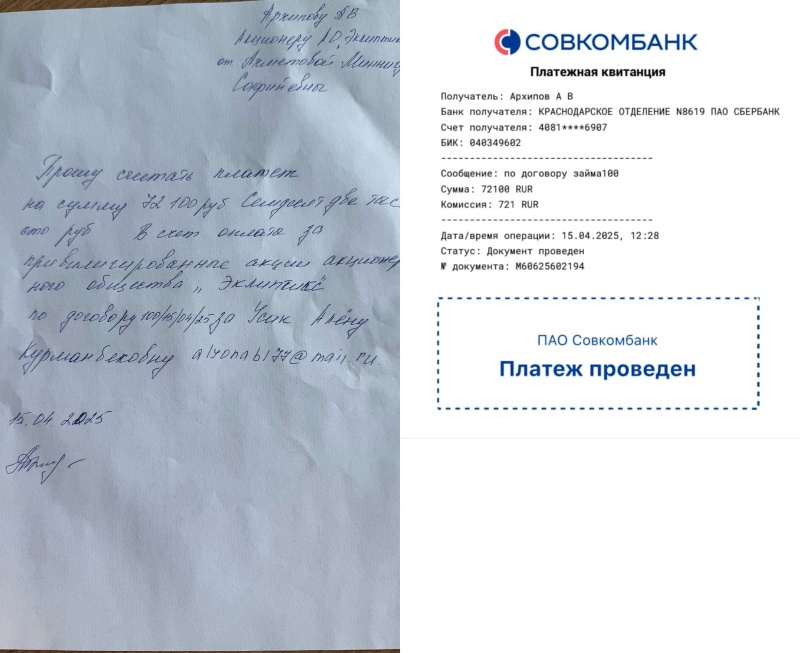 Архипову АВ
Акционеру АО „Эклиптик
от Ахметовой Минни
Софитовны
Прошу считать платеж
на сумму 72 100 руб Семдесят две тыс
сто руб В счет оплата за
привилигированные акции акционер
ного общества „Эклиптик"
по договору 100/15/04/25 за Усик Алёну
Курманбековну alyonabl77@mail.ru
15.04.2025
СОВКОМБАНК
Платежная квитанция
Получатель: Архипов А В
Банк получателя: КРАСНОДАРСКОЕ ОТДЕЛЕНИЕ N8619 ПАО СБЕРБАНК
Счет получателя: 4081****6907
БИК: 040349602
-----------------------------------
Сообщение: по договору займа100
Сумма: 72100 RUR
Комиссия: 721 RUR
-----------------------------------
Дата/время операции: 15.04.2025, 12:28
Статус: Документ проведен
№ документа: M60625602194
ПАО Совкомбанк
Платеж проведен